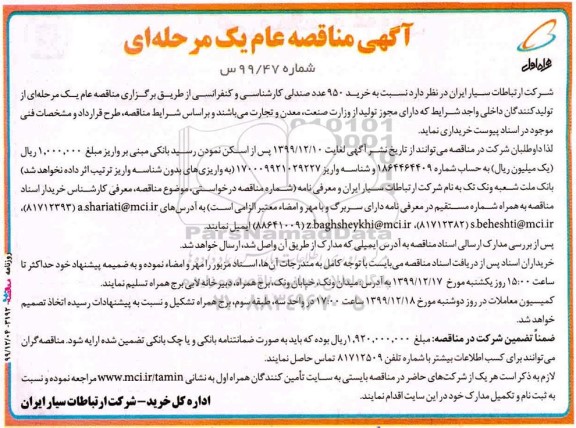 آگهی مناقصه عام یک مرحله‌ای
شماره ۹۹/۴۷ س
همراه اول
شرکت ارتباطات سیار ایران در نظر دارد نسبت به خرید ۹۵۰ عدد صندلی کارشناسی و کنفرانسی از طریق برگزاری مناقصه عام یک مرحله‌ای از
تولیدکنندگان داخلی واجد شرایط که دارای مجوز تولید از وزارت صنعت، معدن و تجارت می‌باشند و براساس شرایط مناقصه، طرح قرارداد و مشخصات فنی
موجود در اسناد پیوست خریداری نماید.
لذا داوطلبان شرکت در مناقصه می‌توانند از تاریخ نشر آگهی لغایت ۱۳۹۹/۱۲/۱۰ پس از اسکن نمودن رسید بانکی مبنی بر واریز مبلغ ۱,۰۰۰,۰۰۰ ریال
(یک میلیون ریال) به حساب شماره ۱۸۶۴۴۶۴۴۰۹ و شناسه واریز ۱۷۰۰۰۹۹۲۱۰۲۹۲۲۷ (به واریزی‌های بدون شناسه واریز ترتیب اثر داده نخواهد شد)
بانک ملت شعبه ونک تک به نام شرکت ارتباطات سیار ایران و معرفی نامه (شماره مناقصه درخواستی، موضوع مناقصه، معرفی کارشناس خریدار اسناد
مناقصه به همراه شماره مستقیم در معرفی نامه دارای سربرگ و با مهر و امضاء معتبر الزامی است) به آدرس های a.shariati@mci.ir (۸۱۷۱۲۳۹۳)،
s.beheshti@mci.ir (۸۱۷۱۲۳۸۲)، z.baghsheykhi@mci.ir (۸۸۶۴۱۰۰۹) ایمیل نمایند.
پس از بررسی مدارک ارسالی اسناد مناقصه به آدرس ایمیلی که مدارک از طریق آن واصل شد، ارسال خواهد شد.
خریداران اسناد پس از دریافت اسناد مناقصه می‌بایست با توجه کامل به مندرجات آن‌ها، اسناد مزبور را مهر و امضاء نموده و به ضمیمه پیشنهاد خود حداکثر تا
ساعت ۱۵:۰۰ روز یکشنبه مورخ ۱۳۹۹/۱۲/۱۷ به آدرس میدان ونک، خیابان ونک، برج همراه، دبیرخانه لابی برج همراه تسلیم نمایند.
کمیسیون معاملات در روز دوشنبه مورخ ۱۳۹۹/۱۲/۱۸ ساعت ۱۷:۰۰ الی ۰۶:۰۰ طبقه سوم، برج همراه تشکیل و نسبت به پیشنهادات رسیده اتخاذ تصمیم
خواهد شد.
ضمناً تضمین شرکت در مناقصه: مبلغ ۱,۹۲۰,۰۰۰,۰۰۰ ریال بوده که باید به صورت ضمانتنامه بانکی و یا چک بانکی تضمین شده ارایه شود. مناقصه‌گران
می‌توانند برای کسب اطلاعات بیشتر با شماره تلفن ۸۱۷۱۲۵۰۹ تماس حاصل نمایند.
لازم به ذکر است هر یک از شرکت‌های حاضر در مناقصه بایستی به سایت تأمین کنندگان همراه اول به نشانی www.mci.ir/tamin مراجعه نموده و نسبت
به ثبت نام و تکمیل مدارک خود در این سایت اقدام نمایند.
اداره کل خرید – شرکت ارتباطات سیار ایران
ParsNamadData